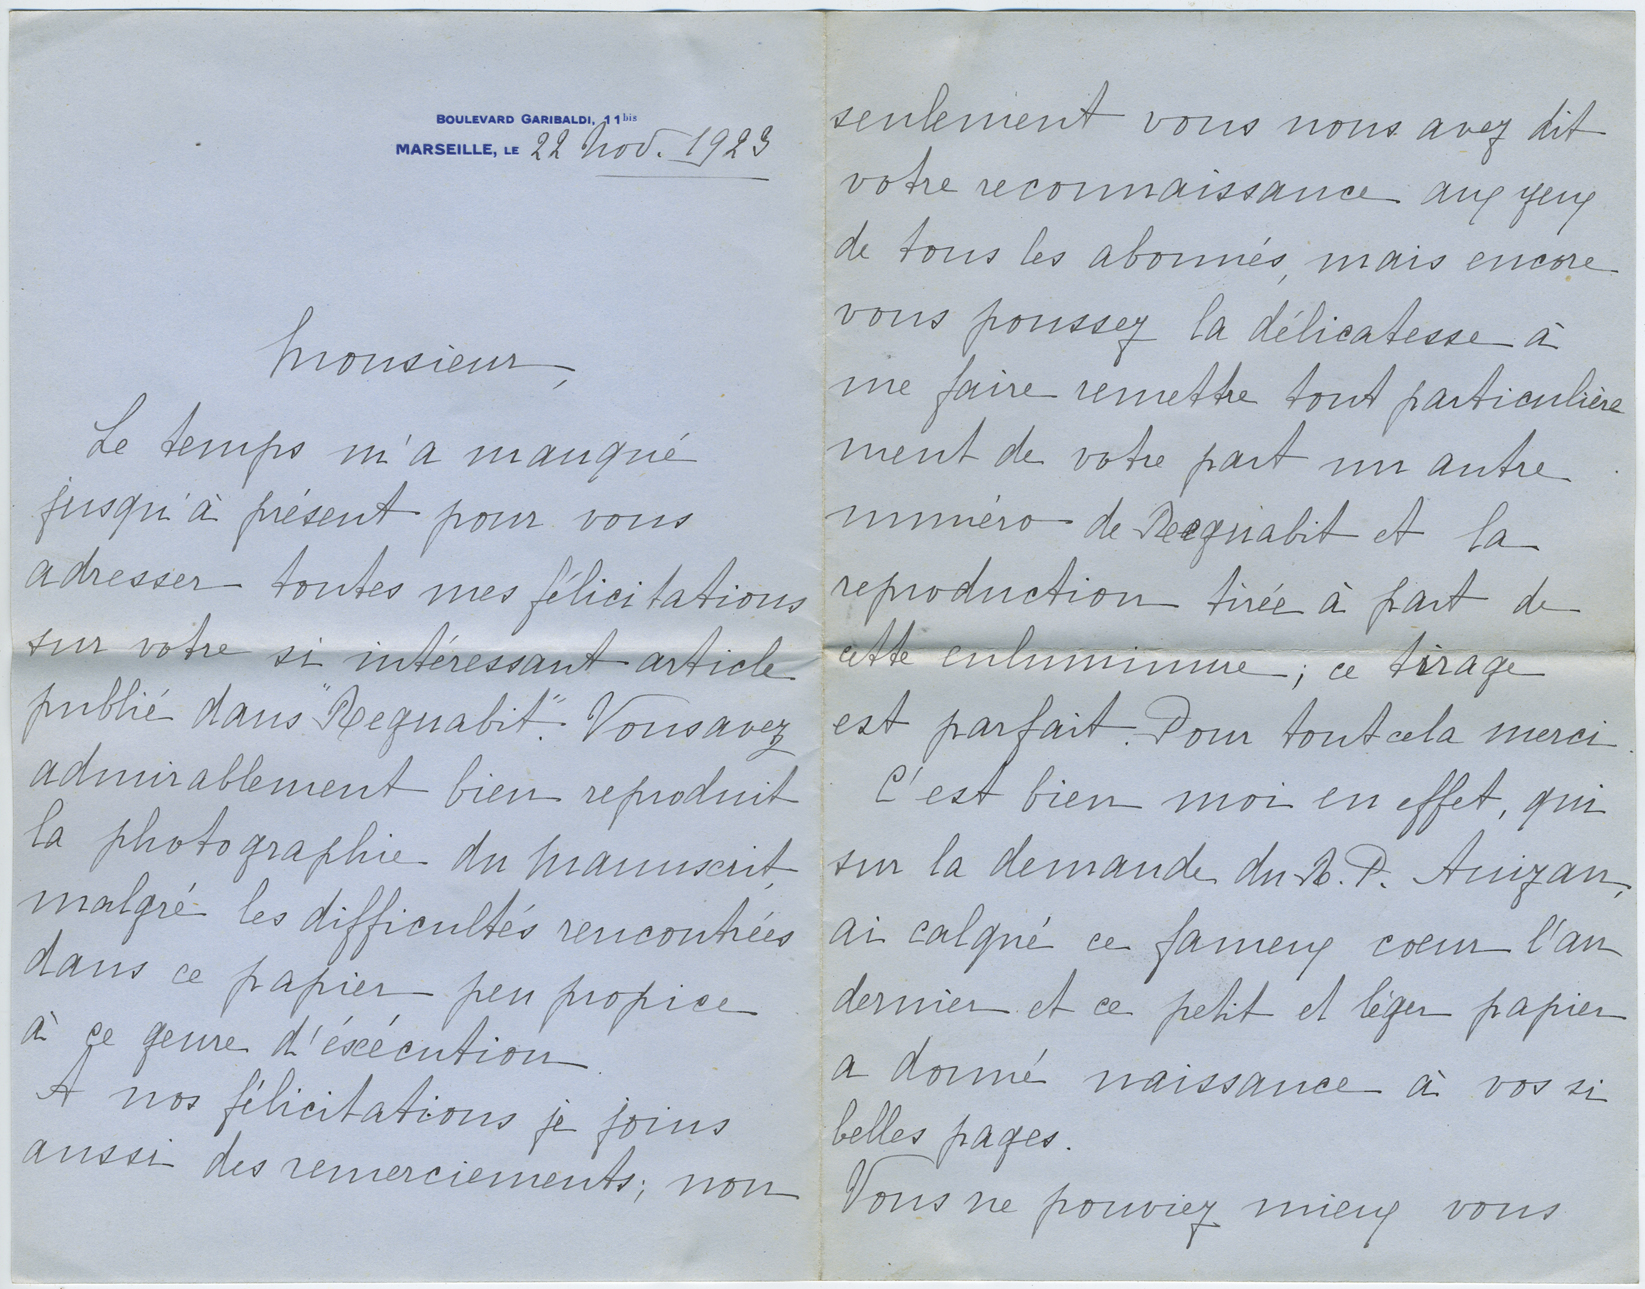 BOULEVARD GARIBALDI, 11bis
MARSEILLE, LE 22 Nov. 1923
Monsieur,
Le temps m'a manqué
jusqu'à présent pour vous
adresser toutes mes félicitations
sur votre si intéressant article
publié dans "Regnabit". Vous avez
admirablement bien reproduit
la photographie du Manuscrit,
malgré les difficultés rencontrées
dans ce papier peu propice
à ce genre d'éxécution.
A nos félicitations je joins
aussi des remerciements; non
seulement vous nous avez dit
votre reconnaissance aux yeux
de tous les abonnés, mais encore
vous poussez la délicatesse à
me faire remettre tout particulière
ment de votre part un autre
numéro de Regnabit et la
reproduction tirée à part de
cette enluminure; ce tirage
est parfait. Pour tout cela merci.
C'est bien moi en effet, qui
sur la demande du R. P. Anizan,
ai calqué ce fameux coeur l'an
dernier et ce petit et léger papier
a donné naissance à vos si
belles pages.
Vous ne pouviez mieux vous